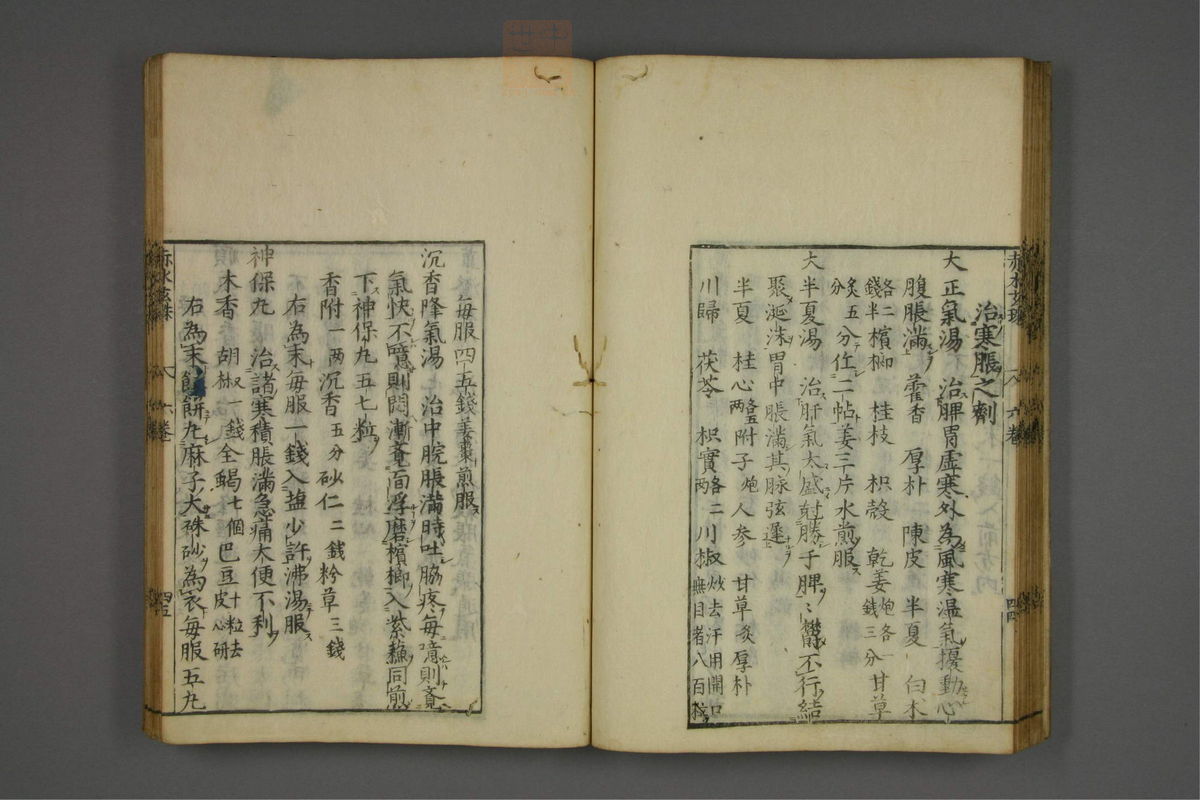 治寒脹之劑
大正氣湯　治脾胃虛寒外為風寒温氣擾動心
腹脹滿　藿香　厚朴　陳皮　半夏　白术
各二錢半檳榔　桂枝　枳殻　乾姜炮各一錢三分甘草
炙五分作二帖姜三片水煎服
大半夏湯　治肝氣太盛尅勝于脾〻欝不行結
聚涎沫胃中脹滿其脉弦遲
半夏　桂心各五兩附子炮人参　甘草炙厚朴
川歸　茯苓　枳實各二兩川椒炒去汗用開口無目者八百粒
赤水玄珠　六卷　四四
每服四五錢姜棗煎服
沉香降氣湯　治中脘脹滿時吐脇疼每噫則覺
氣快不噫則悶漸覺面浮磨檳榔入紫蘓同煎
下神保九五七粒
香附一兩沉香五分砂仁二錢粉草三錢
右為末每服一錢入盐少許沸湯服
神保九　治諸寒積脹滿急痛大便不利
木香　胡椒一錢全蝎七個巴豆十粒去皮心研
右為末餅九麻子大硃砂為衣每服五九
赤水玄珠　六卷　四五